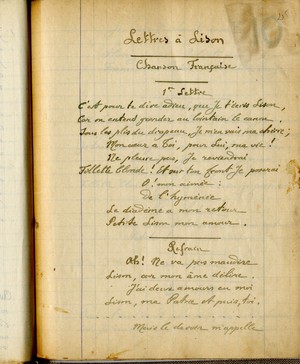 Lettres à Lison
Chanson Française
1re Lettre
C'est pour te dire adieu, que je t'écris Lison,
Car on entend gronder au lointain le canon.
Sous les plis du drapeau, je m'en vais ma chérie;
Mon cœur à toi, pour lui, ma vie!
Ne pleure pas, Je reviendrai
Follette blonde! Et sur ton front Je poserai
O! mon aimée:
de l'hyménée
Le diadème à mon retour
Petite Lison mon amour.
Refrain
Ah! Ne va pas maudire
Lison, car mon âme délire.
J'ai deux amours en moi
Lison, ma Patrie et puis, toi.
Mais le devoir m'appelle